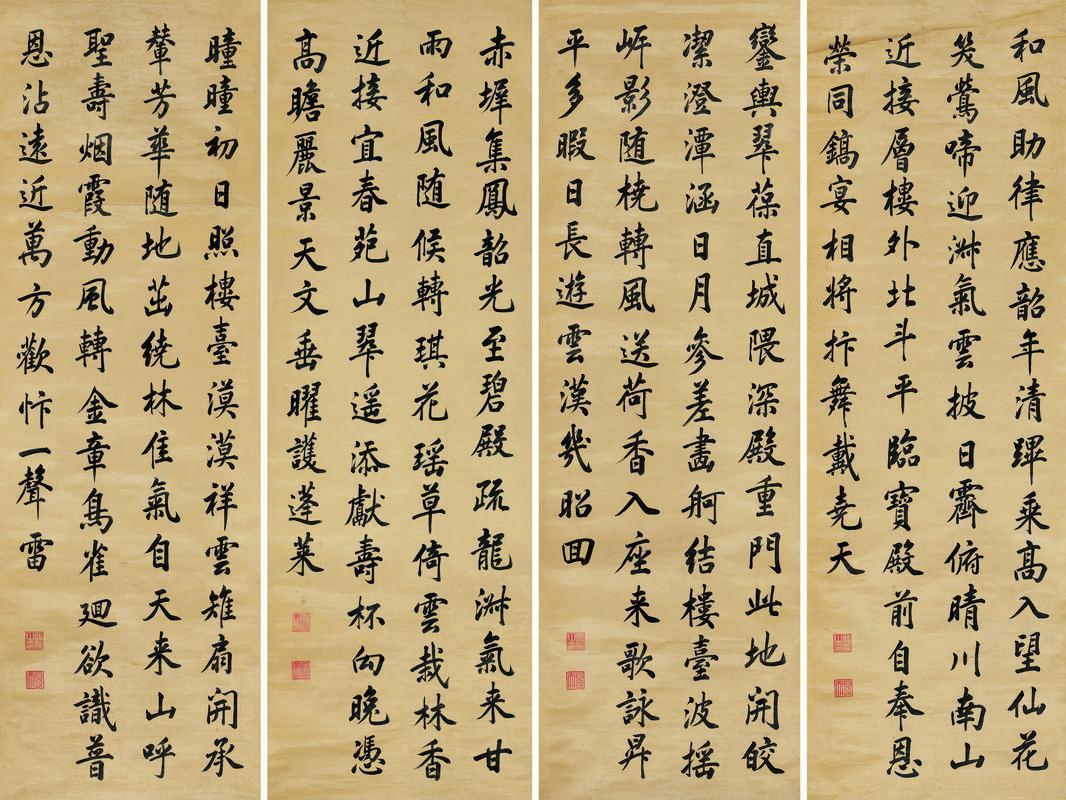 和風助律應韶年清蹕乘高入望仙花
笑鶯啼迎淑氣雲披日霽俯晴川南山
近接層樓外北斗平臨寶殿前自奉恩
榮同鎬宴相將抃舞戴堯天
鑾輿翠葆直城隈深殿重門此地開皎
潔澄潭涵日月參差畫舸結樓臺波摇
岸影随橈轉風送荷香入座来歌詠昇
平多暇日長遊雲漢幾昭回
赤墀集鳳韶光至碧殿疏龍淑氣来甘
雨和風随候轉琪花瑶草倚雲栽林香
近接宜春苑山翠遥添獻壽杯向晚憑
高瞻麗景天文垂曜護蓬萊
曈曈初日照樓臺漠漠祥雲雉扇開承
輦芳華随地茁繞林佳氣自天来山呼
聖壽烟霞動風轉金章鳥雀廻欲識普
恩沾遠近萬方歡忭一聲雷